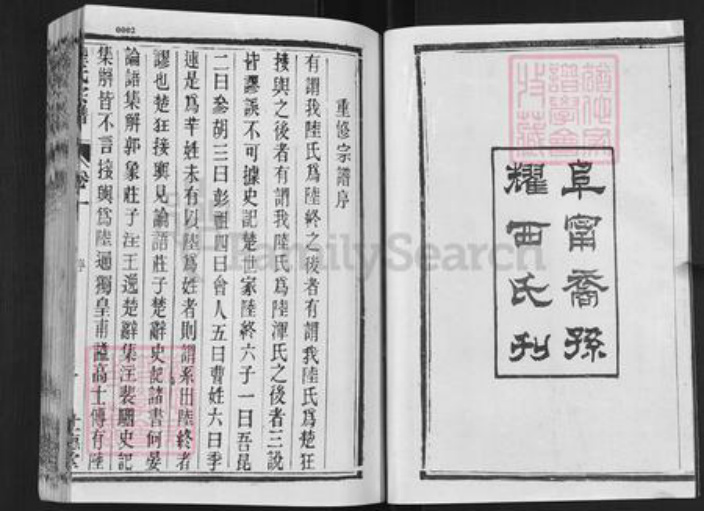 0002
阜甯裔孫
耀西氏刋
重修宗譜序
有謂我陸氏爲陸終之後者有謂我陸氏爲楚狂
接輿之後者有謂我陸氏爲陸渾氏之後者三說
皆謬誤不可據史記楚世家陸終六子一曰吾昆
二曰參胡三曰彭祖四曰會人五曰曹姓六曰季
連是爲芈姓未有以陸爲姓者則謂系出陸終者
謬也楚狂接輿見論語莊子楚辭史記諸書何晏
論語集解郭象莊子注王逸楚辭集注裴駰史記
集解皆不言接輿爲陸通獨皇甫謐高士傳有陸
氏宗譜
卷一
序
FamilySearch